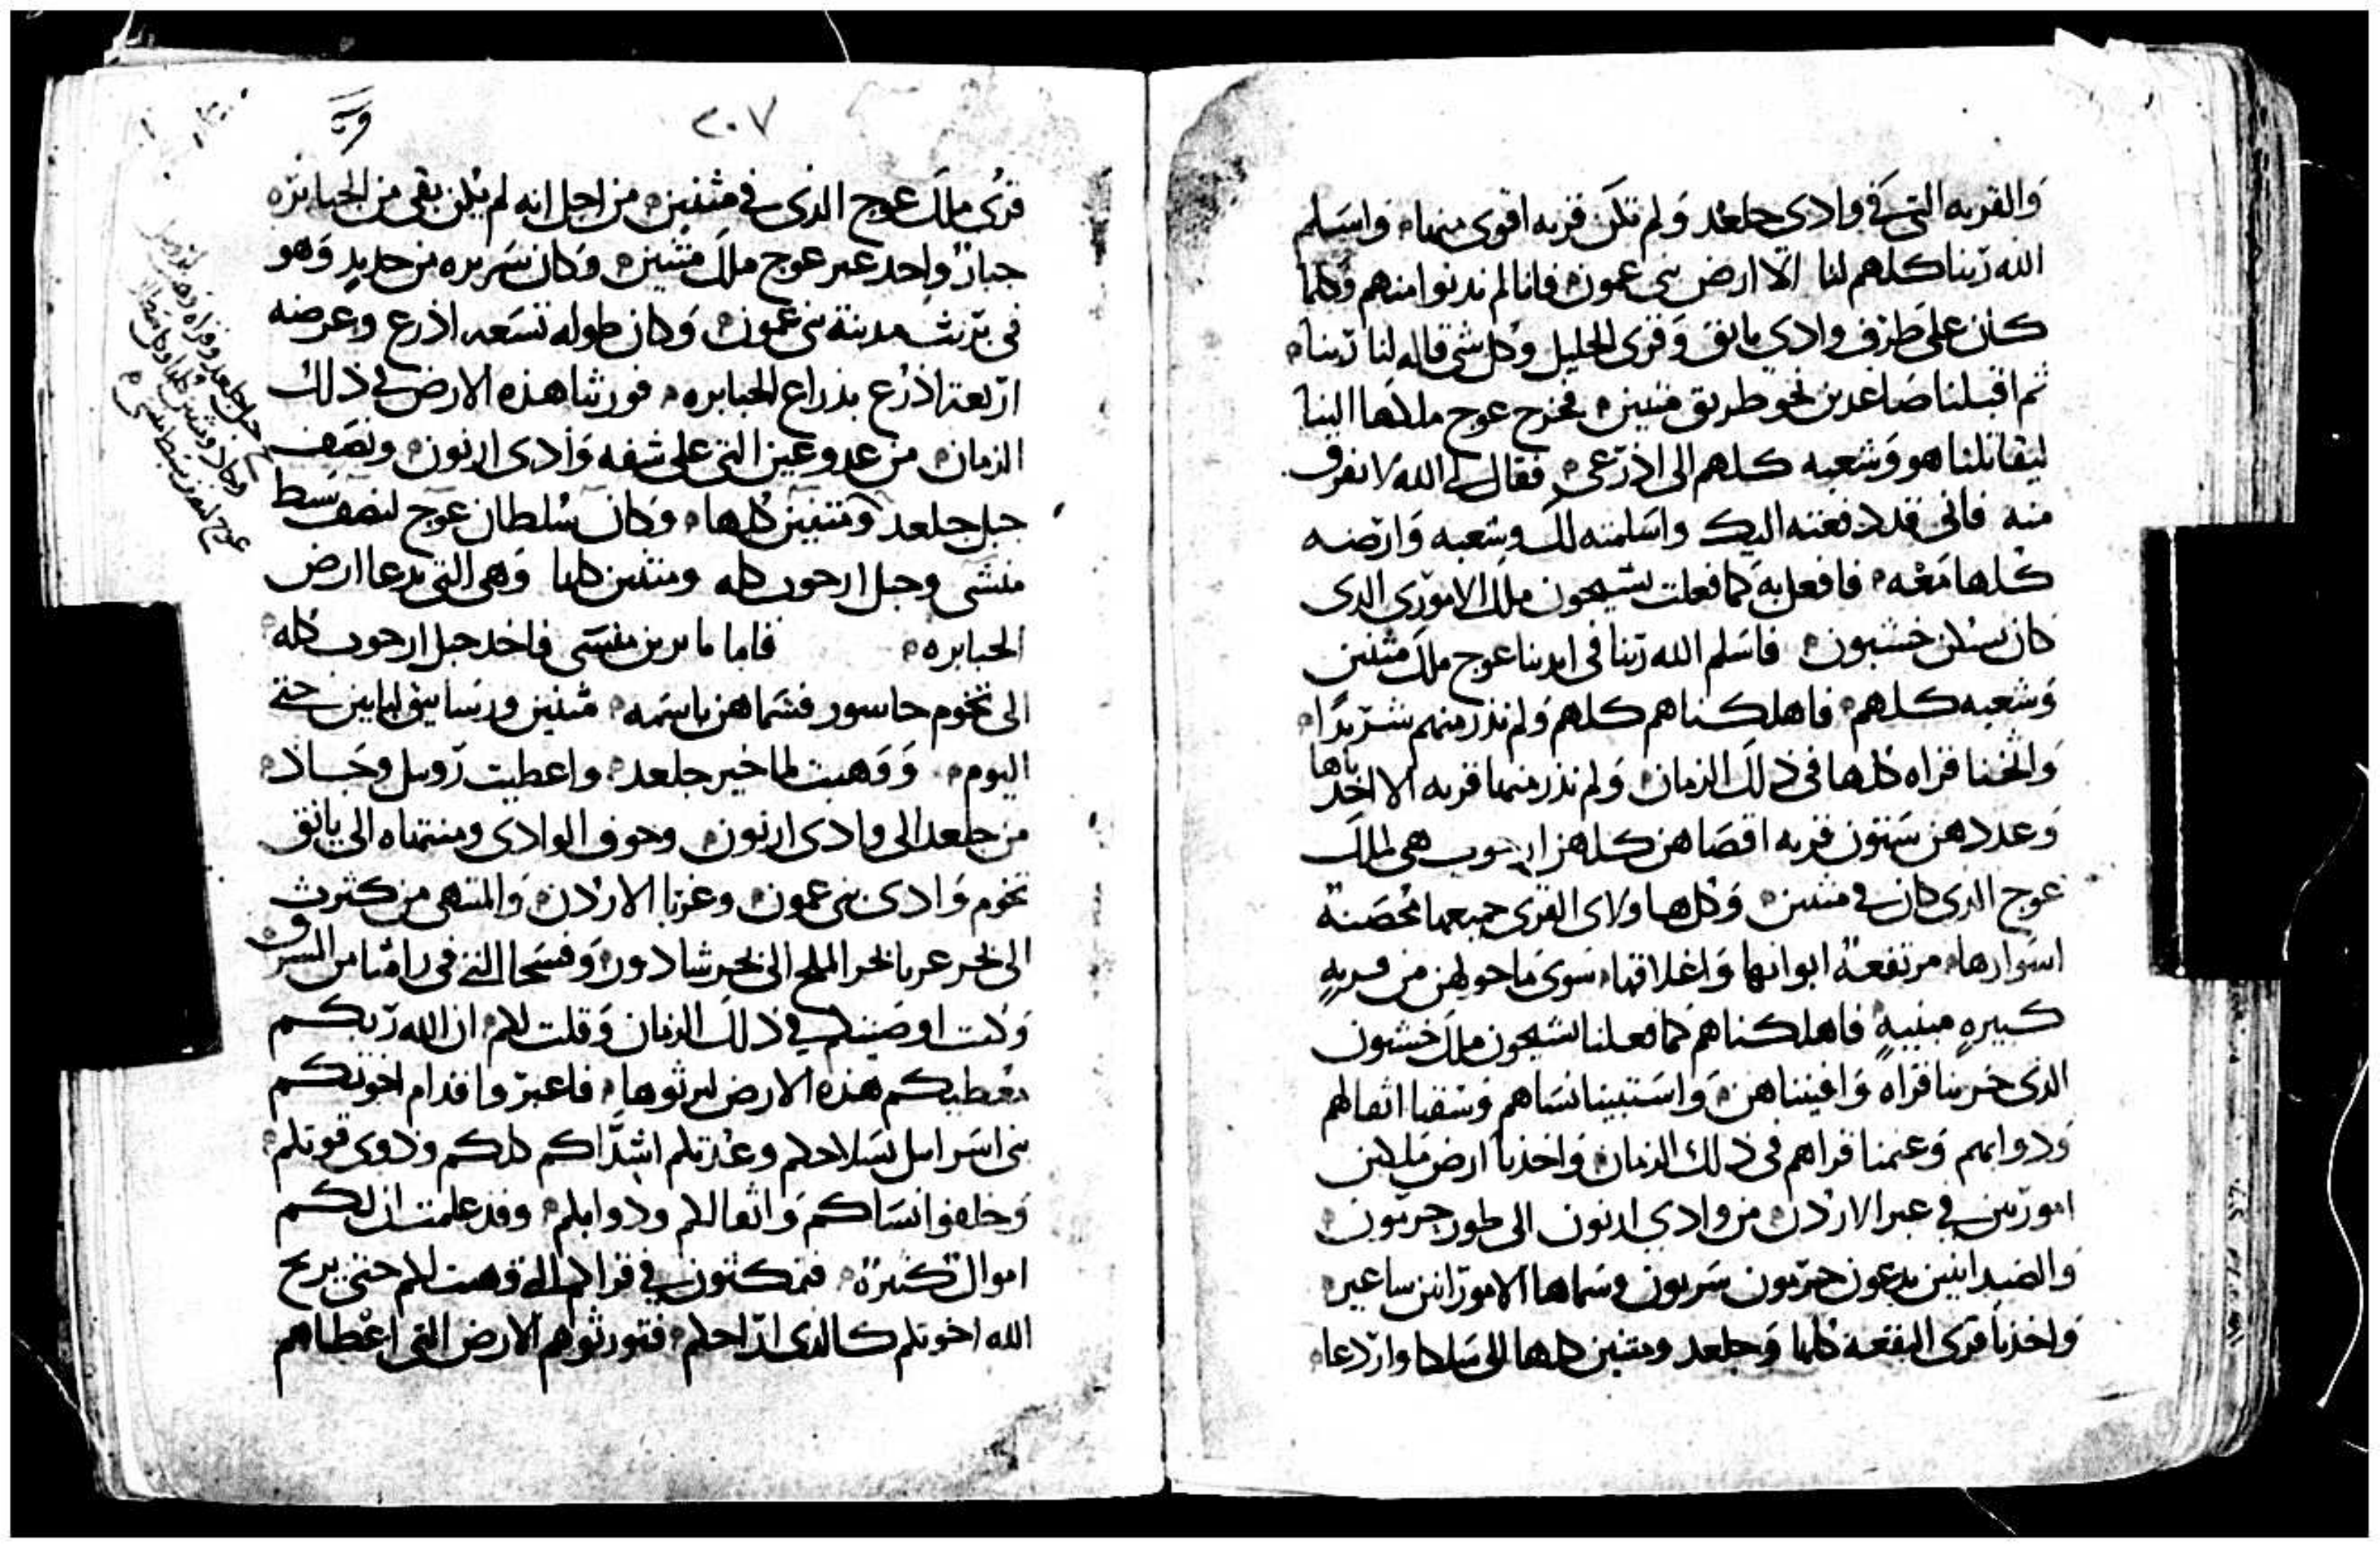 والقريه التي في وادي جلعد ولم تكن قريه اقوى منها واسلم
الله ربنا كلهم لنا الا ارض بني عمون فانا لم ندنوا منهم وكلما
كان على طرف وادي يابق وقرى الجليل وكل شي قاله لنا ربنا
ثم اقبلنا صاعدين نحو طريق متنين فخرج عوج ملكها الينا
ليقاتلنا هو وشعبه كلهم الى اذرعي فقال لي الله لا تفرق
منه فاني قد دفعته اليك واسلمته لك وشعبه وارضه
كلها معه فافعل به كما فعلت بشيحون ملك الاموري الذي
كان يسكن خشبون فاسلم الله ربنا في ايدينا عوج ملك متنين
وشعبه كلهم فاهلكناهم كلهم ولم نذر منهم شريدا
واثخنا قراه كلها في ذلك الزمان ولم نذر منها قريه الا اخذناها
وعددهن ستون قريه اقصاهن كلهن ارجوب هي لملك
عوج الذي كان في متنين وكل هاولاي القرى جميعها محصنة
اسوارها مرتفعة ابوابها واغلاقها سوى ما حولهن من قريه
كبيره مبنيه فاهلكناهم كما فعلنا بشيحون ملك خشبون
الذي خربنا قراه وافنيناهن واستبينا نساهم وسقنا اثقالهم
ودوابهم وغنمنا قراهم في ذلك الزمان واخذنا ارض ملكين
امورين في عبر الاردن من وادي ارنون الى طور حرمون
والصيدانيين يدعون حرمون سريون وسماها الامورانين ساعير
واخذنا قرى البقعة كلها وجلعد ومتنين كلها الى سلكا واردعا
٢٠٧
قرى ملك عوج الذي في متنين من اجل انه لم يكن بقي من الجبابره
جبار واحد غير عوج ملك متنين وكان سريره من حديد وهو
في بربث مدينة بني عمون وكان طوله تسعه اذرع وعرضه
اربعة اذرع بذراع الجبابره فورثنا هذه الارض في ذلك
الزمان من عدوعين التي على شفه وادي ارنون ونصف
جبل جلعد ومتنين كلها وكان سلطان عوج لنصف سبط
منشى وجبل ارجوب كله ومتنين كلها وهي التي يدعا ارض
الجبابره فاما ماير بن منسى فاخذ جبل ارجوب كله
الى تخوم جاسور فسماهن باسمه متنين ورساتيق ياين حتى
اليوم ووهبت لماخير جلعد واعطيت روبيل وجاد
من جلعد الى وادي ارنون وجوف الوادي ومنتهاه الى يابق
تخوم وادي بني عمون وغربا الاردن والمنتهى من كثرث
الى بحر عربا بحر الملح الى بحير شادور وفسحا التي في رامثا من الشرق
وكنت اوصيتكم في ذلك الزمان وقلت لكم ان الله ربكم
معطيكم هذه الارض لترثوها فاعبروا قدام اخوتكم
بني اسرايل بسلاحكم وعدتكم اشداكم كلكم وذوي قوتكم
وخلفوا نساكم واثقالكم ودوابكم وقد علمت ان لكم
اموال كثيرة فتمكثون في قراكم التي وهبت لكم حتى يريح
الله اخوتكم كالذي اراحكم فتورثوهم الارض التي اعطاهم